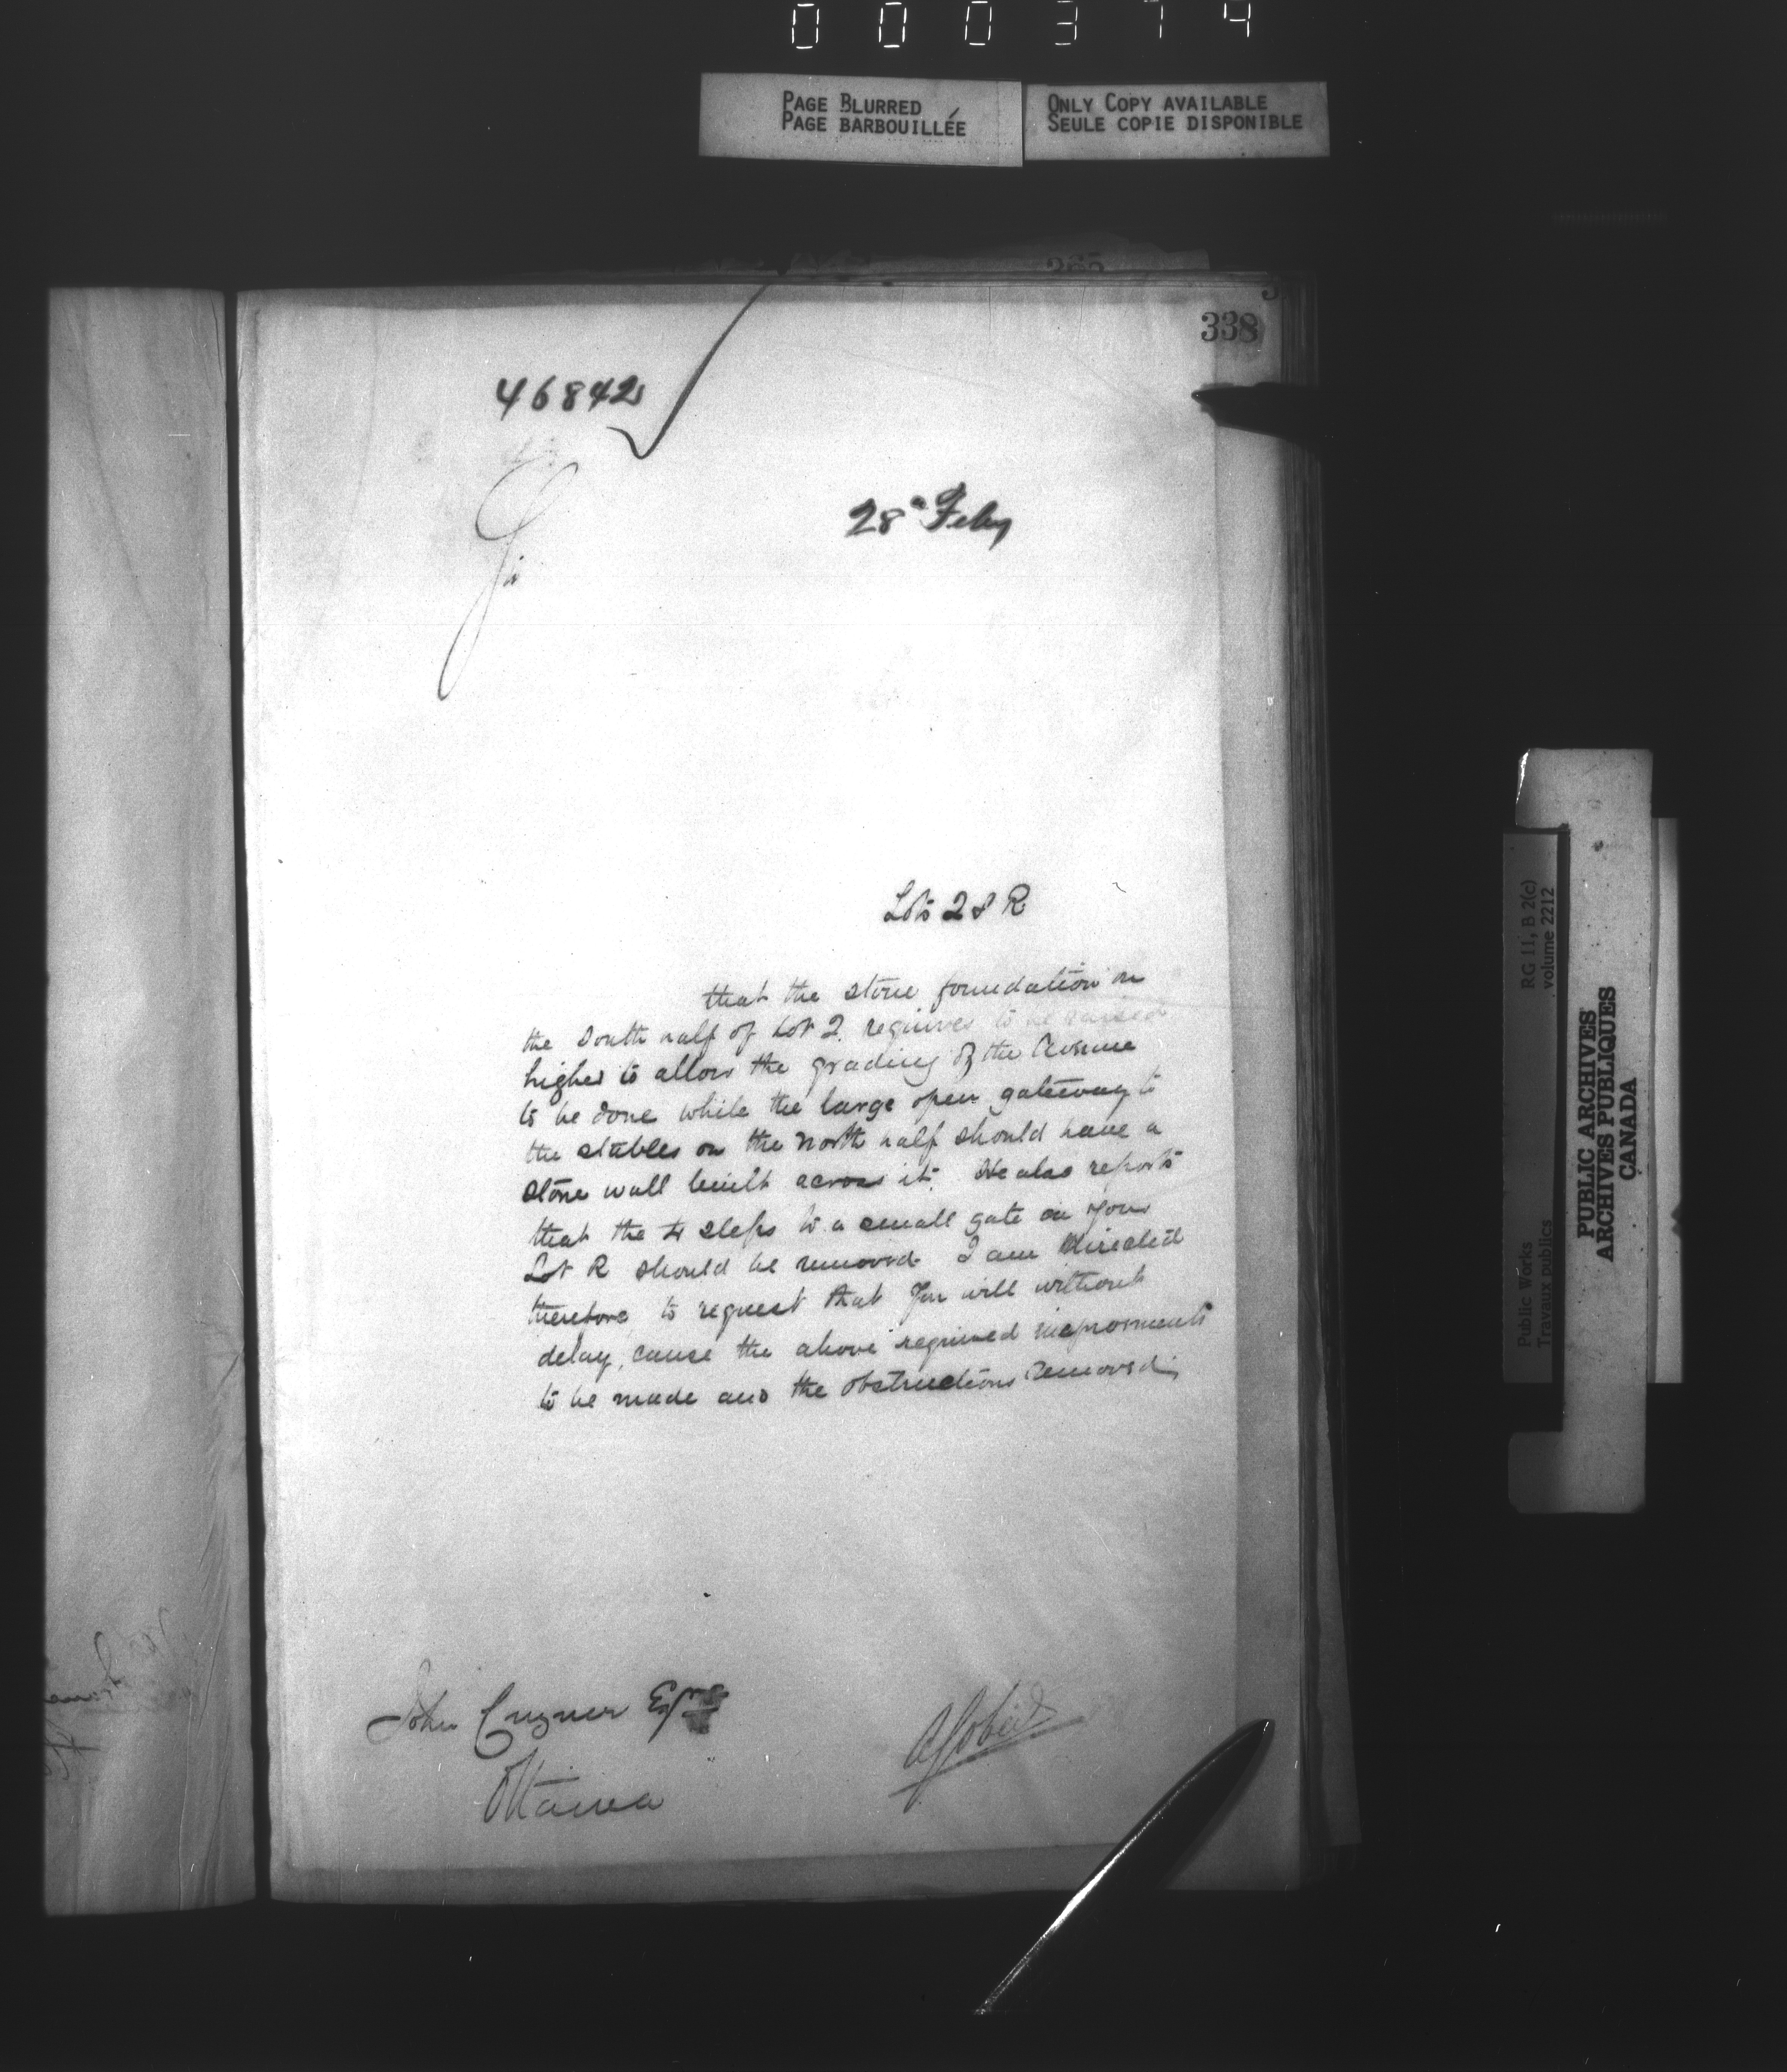 000374
PAGE BLURRED
PAGE BARBOUILLÉE
ONLY COPY AVAILABLE
SEULE COPIE DISPONIBLE
338
46842
Sir
28th Feby
Lots 2 & R
that the stone foundation on
the South half of Lot 2. requires to be raised
higher to allow the grading of the Avenue
to be done while the large open gateway to
the stables on the North half should have a
stone wall built across it. He also reports
that the 4 steps to a small gate on your
Lot R should be removed. I am directed
therefore to request that you will without
delay, cause the above required improvements
to be made and the obstructions removed
John Cuzner Esqre
Ottawa
RG 11, B 2(c)
volume 2212
Public Works
Travaux publics
PUBLIC ARCHIVES
ARCHIVES PUBLIQUES
CANADA